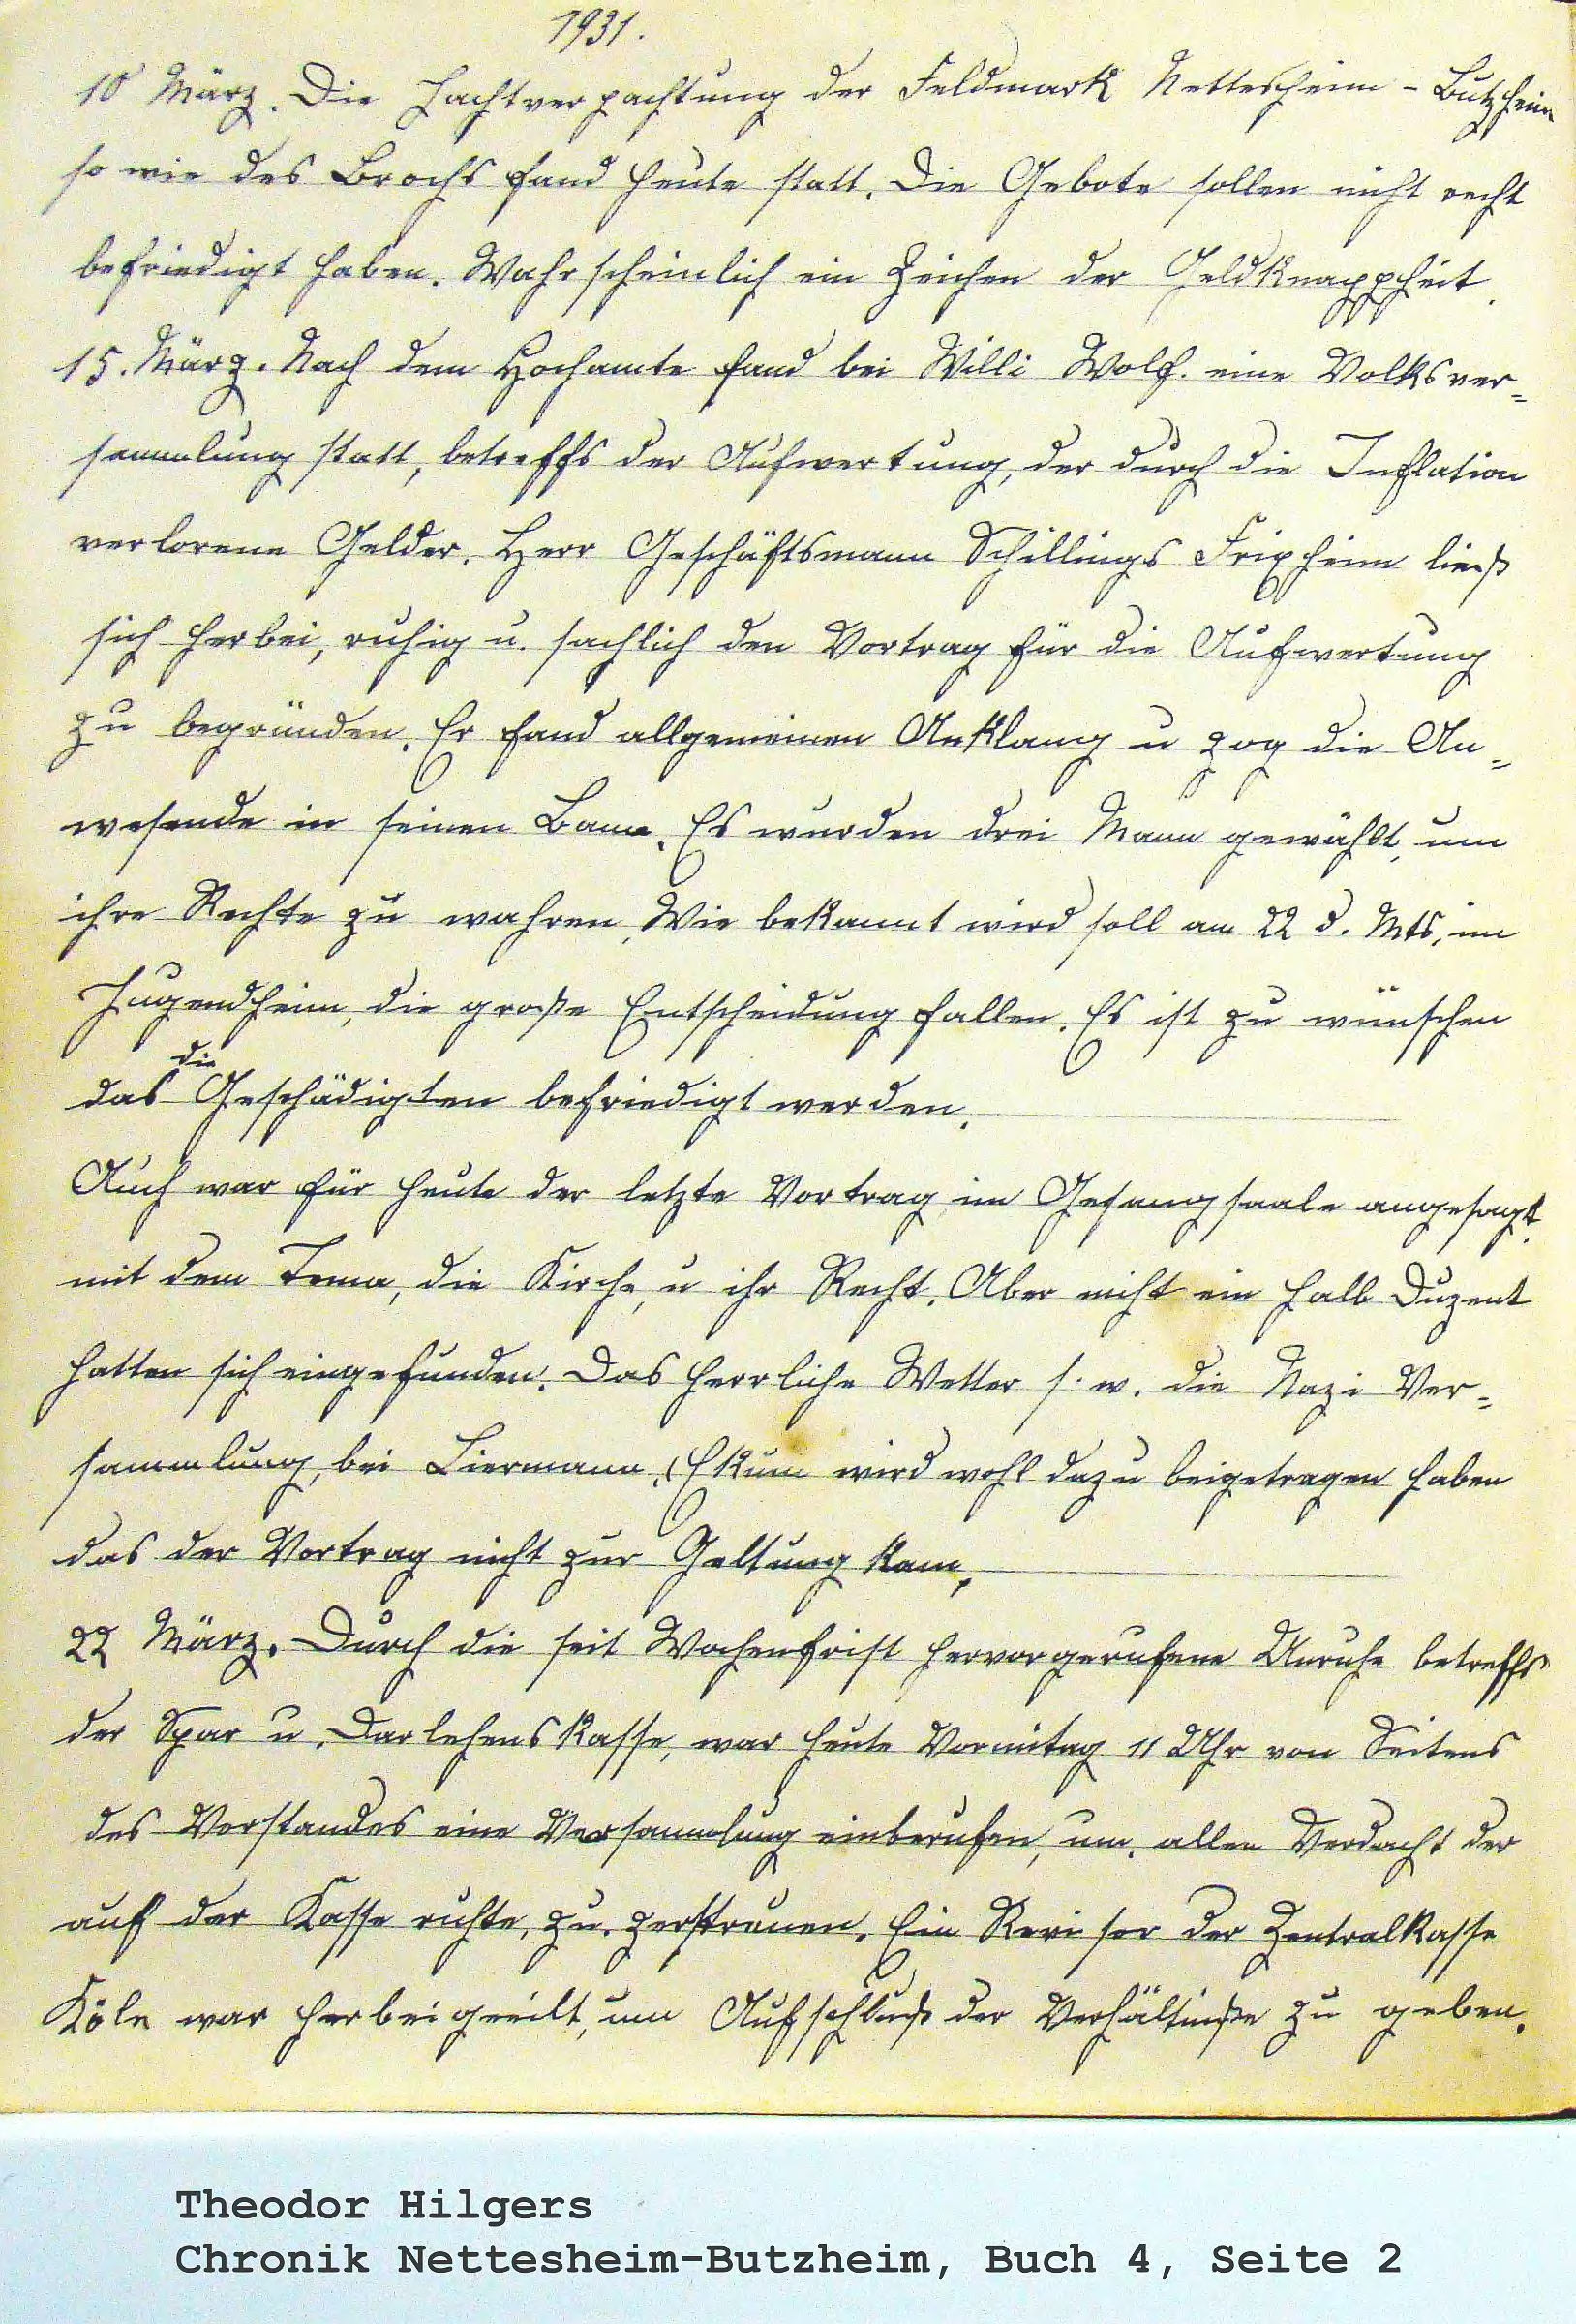 1931.
10 März. Die Jachtverpachtung der Feldmark Nettesheim - Butzheim
so wie des Brochs fand heute statt. Die Gebote sollen nicht recht
befriedigt haben. Wahrscheinlich ein Zeichen der Geldknappheit.
15. März. Nach dem Hochamte fand bei Willi Wolf. eine Volksver=
sammlung statt, betreffs der Aufwertung, der durch die Inflation
verlorene Gelder. Herr Geschäftsmann Schillings Frixheim ließ
sich herbei, ruhig u. sachlich den Vortrag für die Aufwertung
zu begründen. Er fand allgemeinen Anklang u zog die An=
wesende in seinen Bann. Es wurden drei Mann gewählt, um
ihre Rechte zu wahren. Wie bekannt wird soll am 22 d. Mts, im
Jugendheim, die große Entscheidung fallen. Es ist zu wünschen
das die Geschädigten befriedigt werden.
Auch war für heute der letzte Vortrag im Gesangsaale angesagt.
mit dem Tema, die Kirche, u ihr Recht. Aber nicht ein halb Duzent
hatten sich eingefunden. Das herrliche Wetter s. w. die Nazi Ver=
sammlung, bei Liermann, (Ekum wird wohl dazu beigetragen haben
das der Vortrag nicht zur Geltung kam.
22 März. Durch die seit Wochenfrist hervorgerufene Unruhe betreffs
der Spar u. Darlehenskasse, war heute Vormitag 11 Uhr von Seitens
des Vorstandes eine Versammlung einberufen, um. allen Verdacht der
auf der Kasse ruhte, zu. zerstreuen. Ein Revisor der Zentralkasse
Köln war herbeigeeilt, um Aufschluß der Verhältniße zu geben.
Theodor Hilgers
Chronik Nettesheim-Butzheim, Buch 4, Seite 2